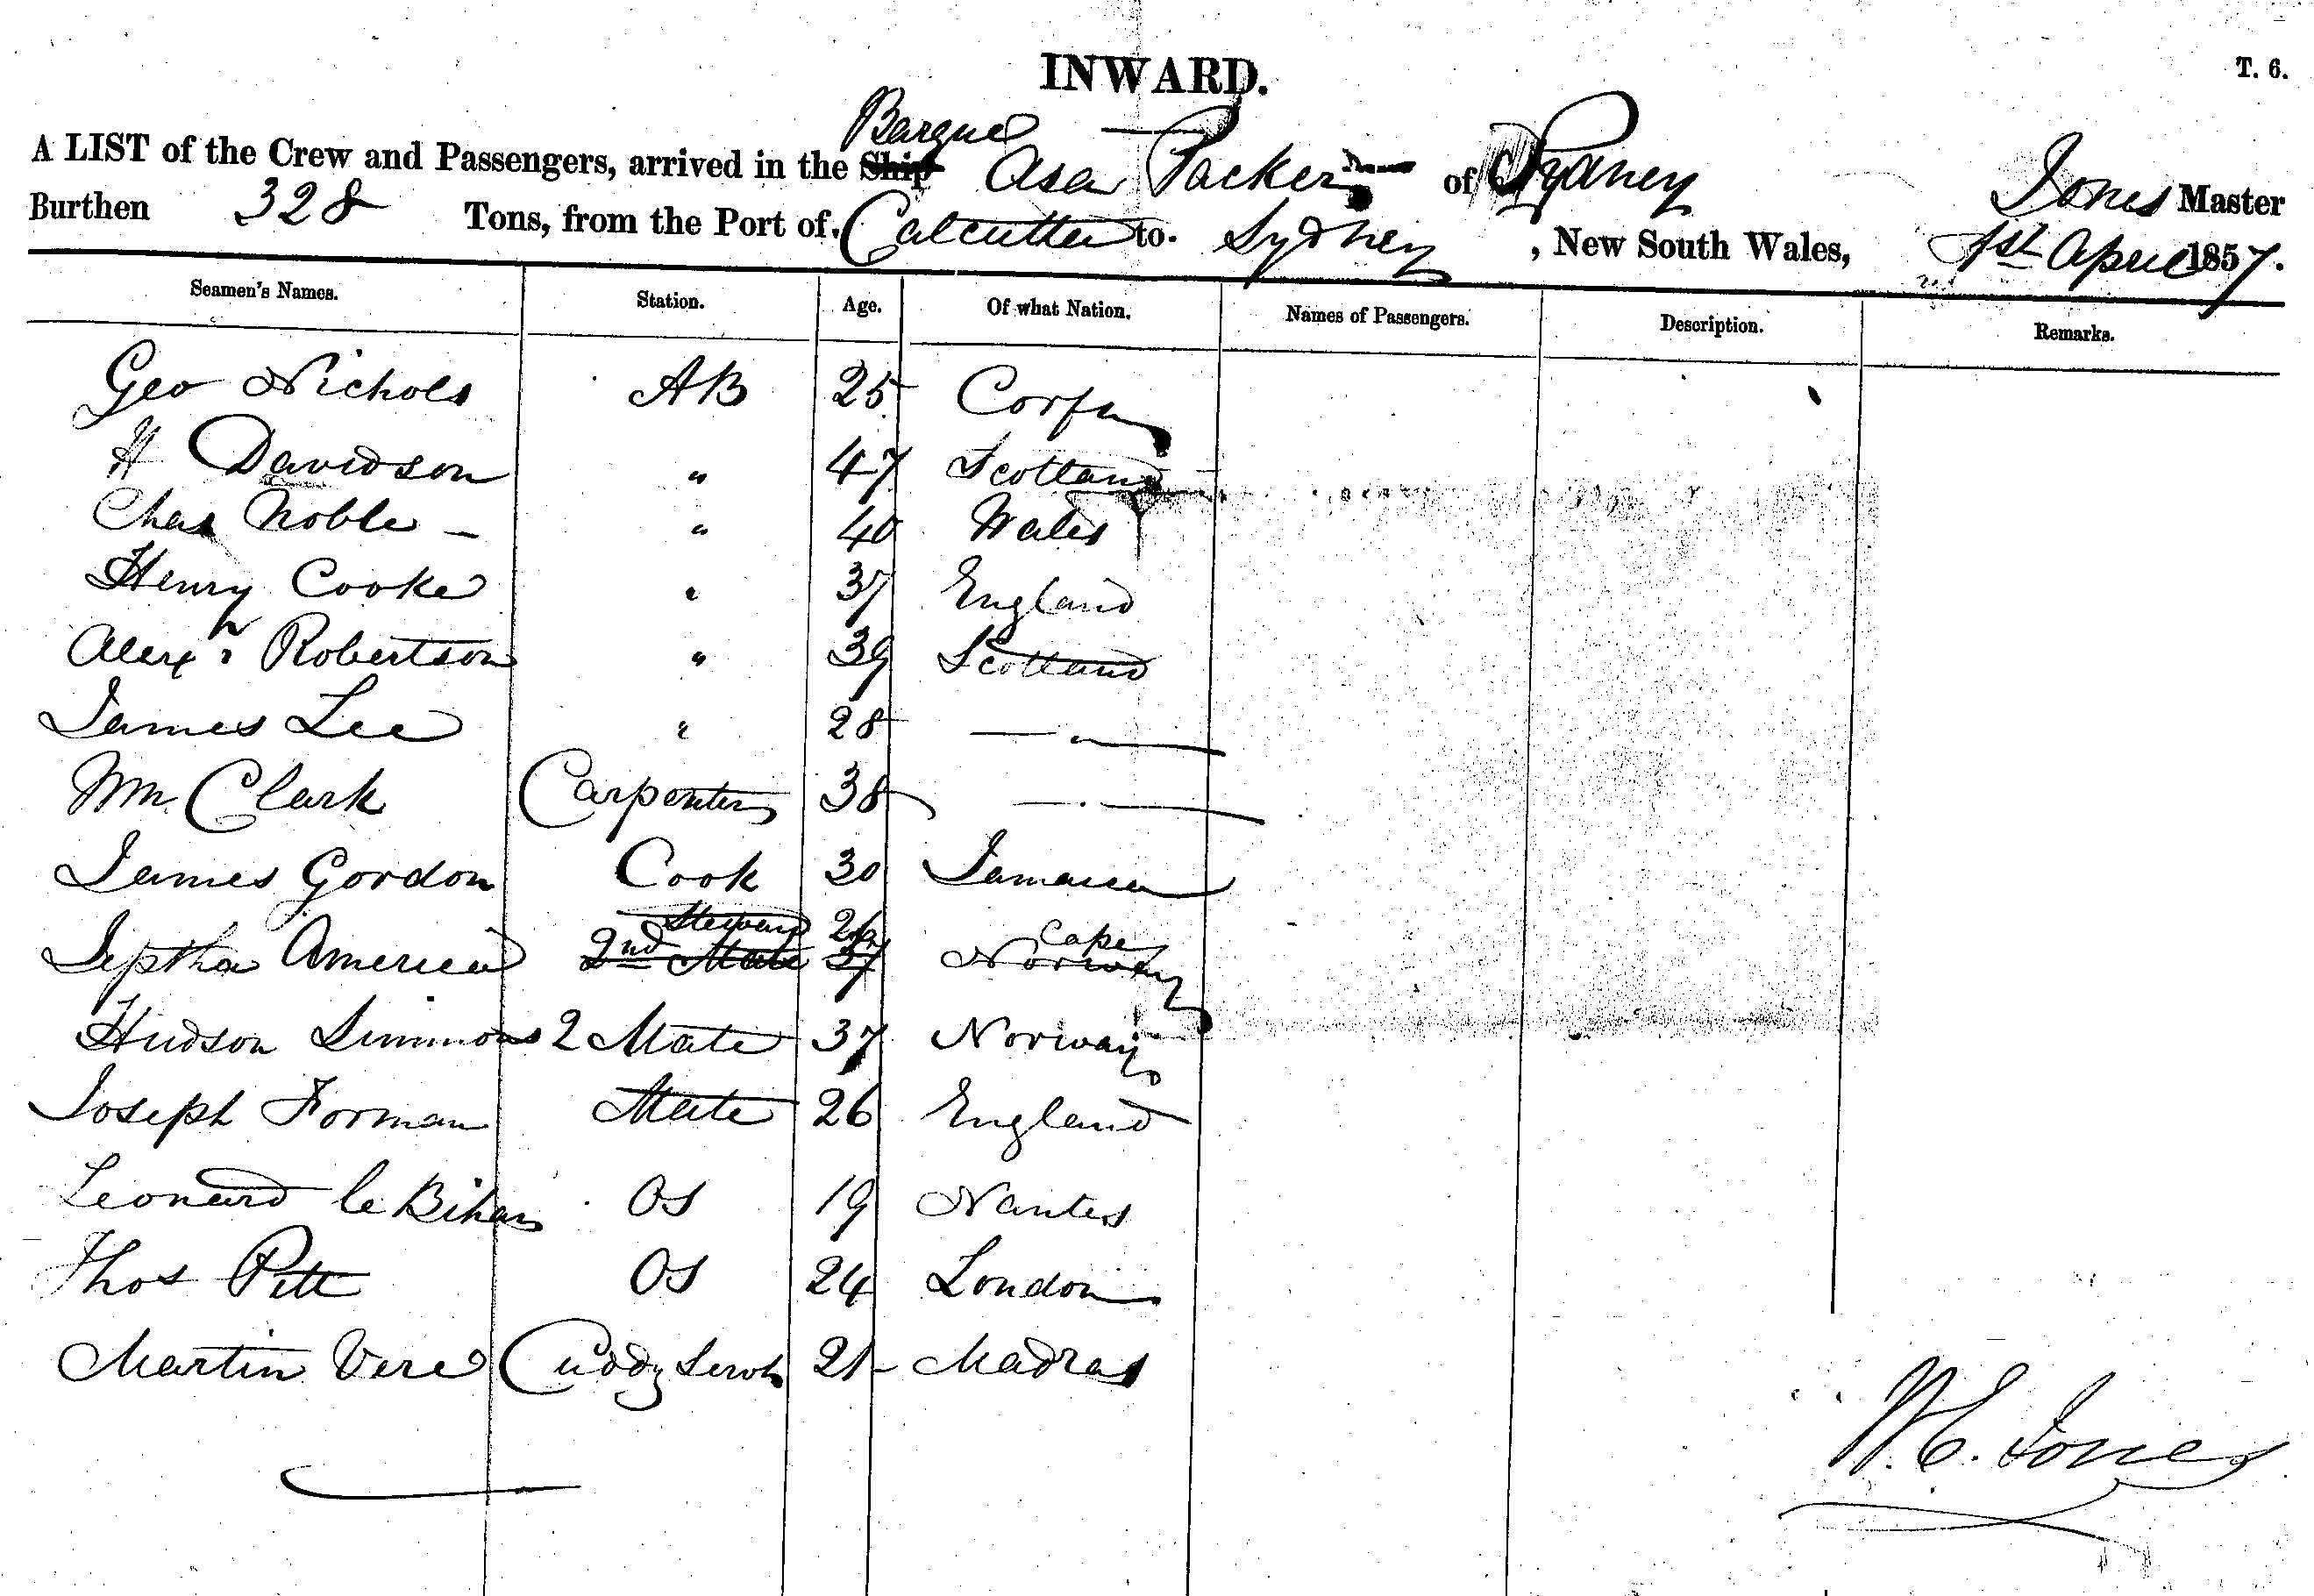 INWARD.
T. 6.
Barque
A LIST of the Crew and Passengers, arrived in the Ship Asa Packer of Sydney Jones Master
Burthen 328 Tons, from the Port of Calcutta to Sydney, New South Wales, 1st April 1857.
Seamen's Names. Station. Age. Of what Nation. Names of Passengers. Description. Remarks.
Geo Nichols AB 25 Corfu
H Davidson " 47 Scotland
Chas Noble — " 40 Wales
Henry Cooke " 37 England
Alexr Robertson " 39 Scotland
James Lee " 28 — " —
Wm Clark Carpenter 38 — " —
James Gordon Cook 30 Jamaica
Steward 26 Cape
Jeptha America 2nd Mate 37 Norway
Hudson Simmons 2 Mate 37 Norway
Joseph Forman Mate 26 England
Leonard le Bihan OS 19 Nantes
Thos Pitt OS 24 London
Martin Vere Cuddy Servt 21 Madras
W. C. Jones